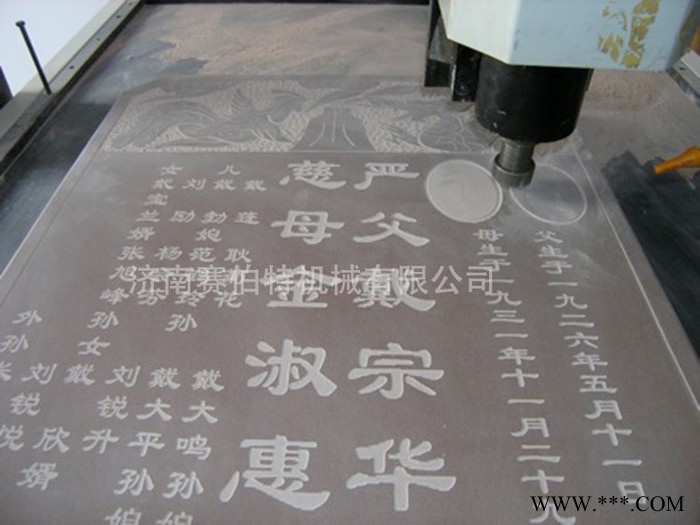 父生于一九二六年五月十一日
母生于一九三一年十一月二十九
严父戴宗华
慈母金淑惠
儿 戴 戴 戴
女 刘
莲 勃 励
戴 宝 兰
媳 耿 范 杨
婿 张 旭 峰
花 玲 芬
孙 戴 戴 刘
大 鸣
大 平
锐
孙 媳
孙 媳
孙 女 戴 升
外 孙 刘 锐 欣
张 悦
婿
济南赛伯特机械有限公司
WWW.***.COM